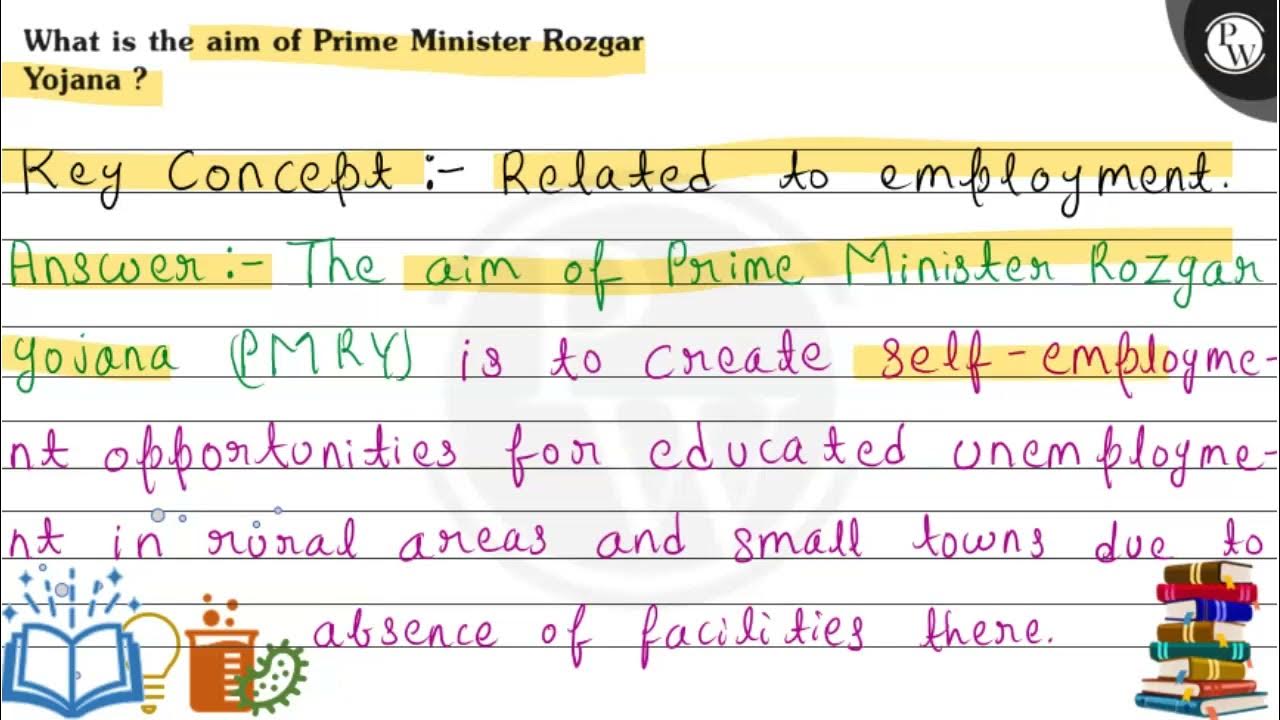 What is the aim of Prime Minister Rozgar
Yojana ?
PW
Key Concept :- Related to employment.
Answer :- The aim of Prime Minister Rozgar
Yojana (PMRY) is to create self-employme-
nt opportunities for educated unemployme-
nt in rural areas and small towns due to
absence of facilities there.